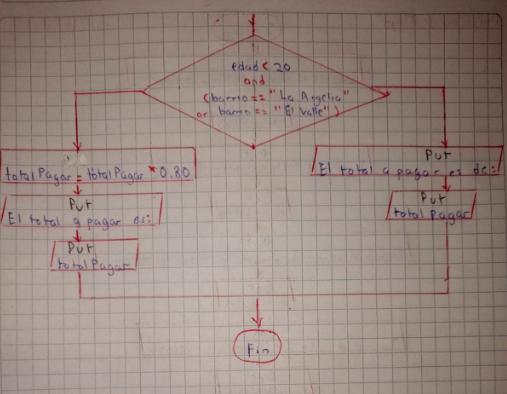 edad < 20
and
(barrio == "La Argelia"
or barrio == "El Valle")
totalPagar = totalPagar * 0.80
Put
El total a pagar es:
Put
totalPagar
Put
El total a pagar es de:
Put
totalPagar
Fin